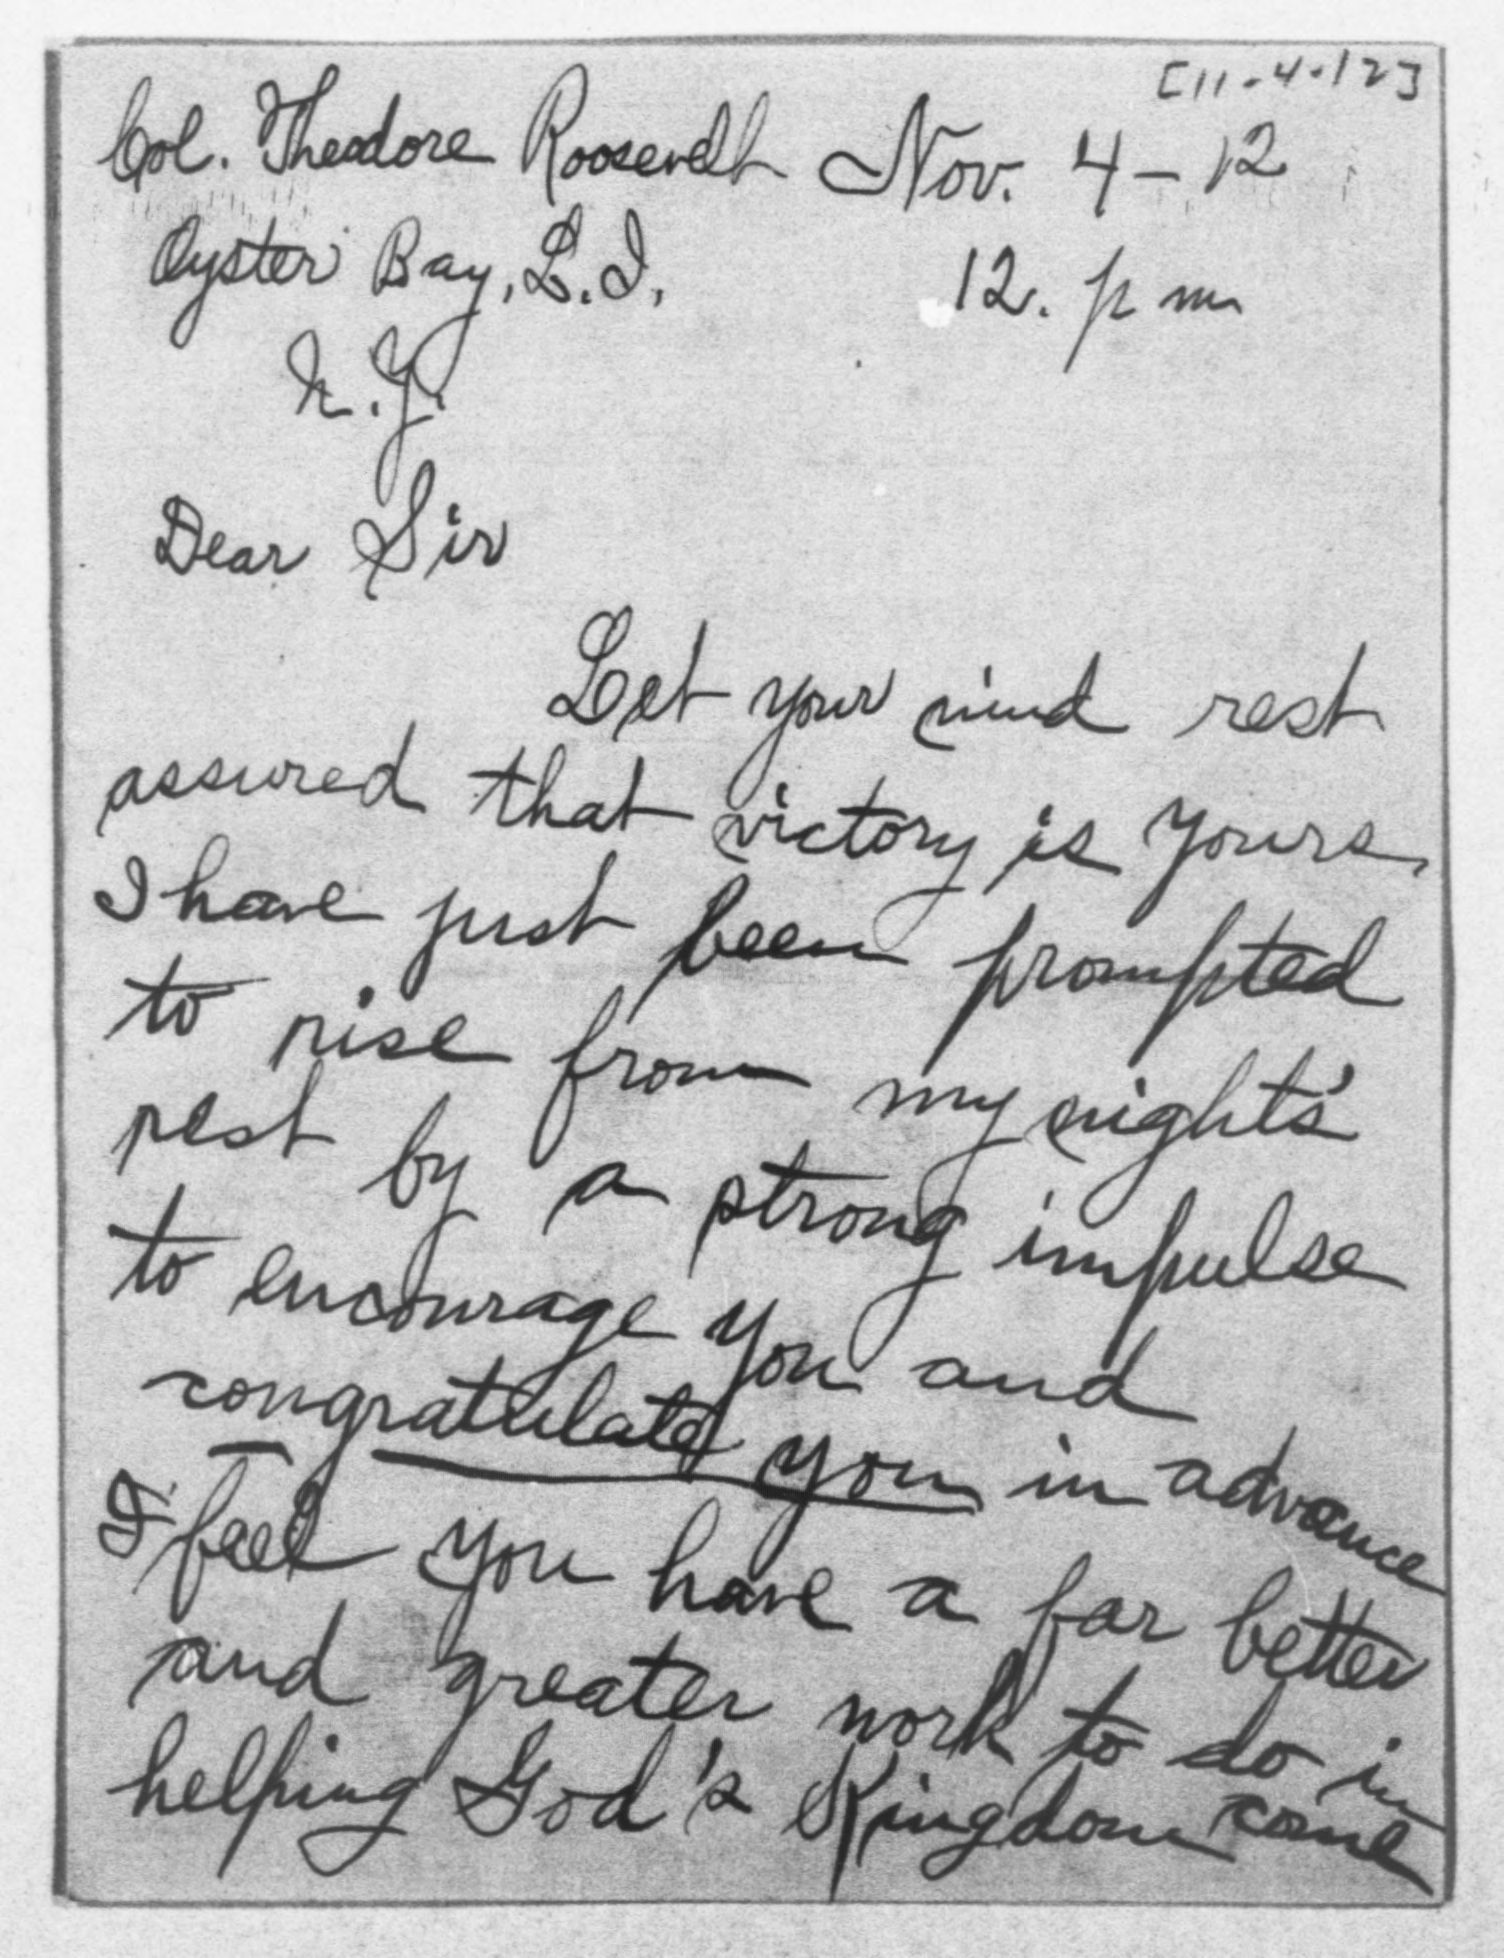 [11-4-12]
Col. Theodore Roosevelt Nov. 4-12
Oyster Bay, L.I. 12. p m
N.Y.
Dear Sir
Let your mind rest
assured that victory is yours.
I have just been prompted
to rise from my night's
rest by a strong impulse
to encourage you and
congratulate you in advance
I feel you have a far better
and greater work to do in
helping God's Kingdom come